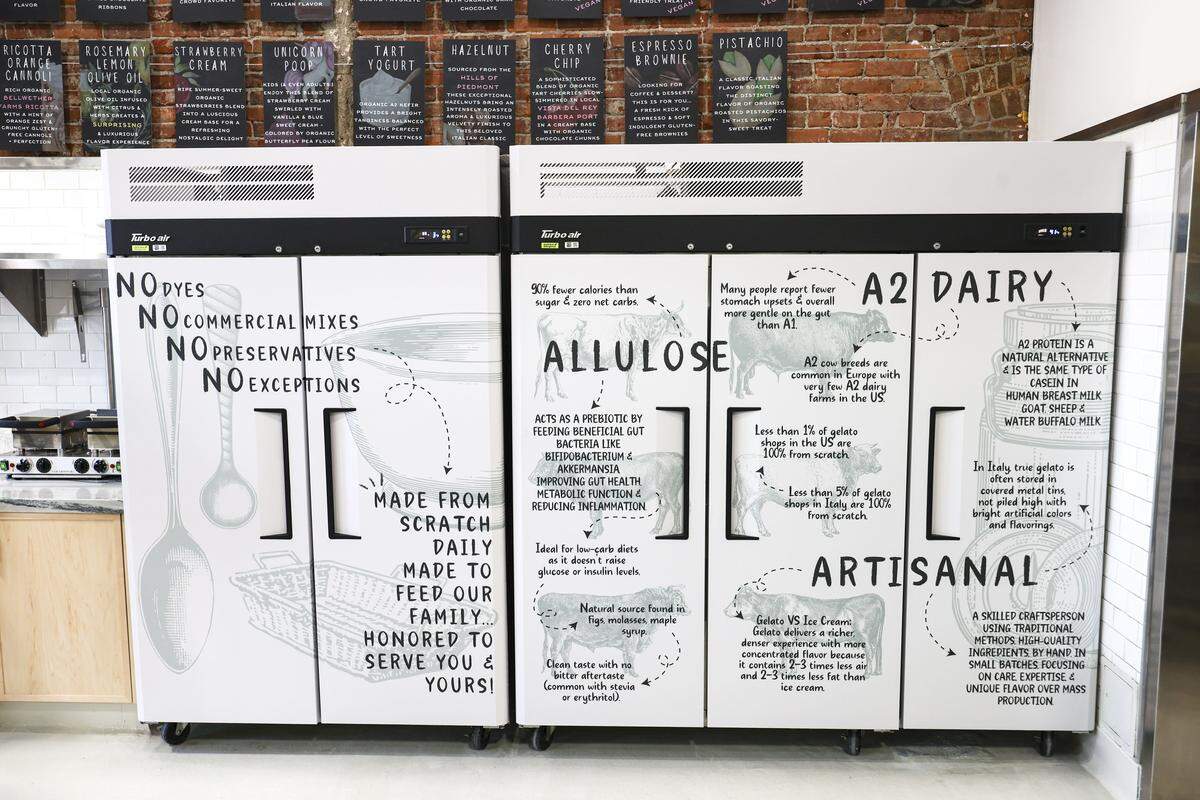 FLAVOR
RIBBONS
CROWD FAVORITE
ITALIAN FLAVOR
CROWD FAVORITE
WITH ORGANIC DARK
CHOCOLATE
VEGAN
FRIENDLY TREAT
VEGAN
RICOTTA
ORANGE
CANNOLI
RICH ORGANIC
BELLWETHER
FARMS RICOTTA
WITH A HINT OF
ORANGE ZEST &
CRUNCHY GLUTEN-
FREE CANNOLI
= PERFECTION
ROSEMARY
LEMON
OLIVE OIL
LOCAL ORGANIC
OLIVE OIL INFUSED
WITH CITRUS &
HERBS CREATES A
SURPRISING
& LUXURIOUS
FLAVOR EXPERIENCE
STRAWBERRY
CREAM
RIPE SUMMER-SWEET
ORGANIC
STRAWBERRIES BLEND
INTO A LUSCIOUS
CREAM BASE FOR A
REFRESHING
NOSTALGIC DELIGHT
UNICORN
POOP
KIDS (& EVEN ADULTS)
ENJOY THIS BLEND OF
STRAWBERRY CREAM
SWIRLED WITH
VANILLA & BLUE
SWEET CREAM -
COLORED BY ORGANIC
BUTTERFLY PEA FLOUR
TART
YOGURT
ORGANIC A2 KEFIR
PROVIDES A BRIGHT
TANGINESS BALANCED
WITH THE PERFECT
LEVEL OF SWEETNESS
HAZELNUT
SOURCED FROM THE
HILLS OF
PIEDMONT
THESE EXCEPTIONAL
HAZELNUTS BRING AN
INTENSELY ROASTED
AROMA & LUXURIOUS
VELVETY FINISH TO
THIS BELOVED
ITALIAN CLASSIC
CHERRY
CHIP
A SOPHISTICATED
BLEND OF ORGANIC
TART CHERRIES SLOW-
SIMMERED IN LOCAL
VISTA DEL REY
BARBERA PORT
IN A CREAMY BASE
WITH ORGANIC
CHOCOLATE CHUNKS
ESPRESSO
BROWNIE
LOOKING FOR
COFFEE & DESSERT?
THIS IS FOR YOU...
A FRESH KICK OF
ESPRESSO & SOFT
INDULGENT GLUTEN
FREE BROWNIES
PISTACHIO
A CLASSIC ITALIAN
FLAVOR BOASTING
THE DISTINCT
FLAVOR OF ORGANIC
ROASTED PISTACHIOS
IN THIS SAVORY-
SWEET TREAT
Turbo air
Turbo air
NO DYES
NO COMMERCIAL MIXES
NO PRESERVATIVES
NO EXCEPTIONS
MADE FROM
SCRATCH
DAILY
MADE TO
FEED OUR
FAMILY...
HONORED TO
SERVE YOU &
YOURS!
90% fewer calories than
sugar & zero net carbs.
ALLULOSE
ACTS AS A PREBIOTIC BY
FEEDING BENEFICIAL GUT
BACTERIA LIKE
BIFIDOBACTERIUM &
AKKERMANSIA
IMPROVING GUT HEALTH,
METABOLIC FUNCTION &
REDUCING INFLAMMATION.
Ideal for low-carb diets
as it doesn't raise
glucose or insulin levels.
Natural source found in
figs, molasses, maple
syrup.
Clean taste with no
bitter aftertaste
(common with stevia
or erythritol).
A2 DAIRY
Many people report fewer
stomach upsets & overall
more gentle on the gut
than A1.
A2 cow breeds are
common in Europe with
very few A2 dairy
farms in the US.
A2 PROTEIN IS A
NATURAL ALTERNATIVE
& IS THE SAME TYPE OF
CASEIN IN
HUMAN BREAST MILK
GOAT SHEEP &
WATER BUFFALO MILK
Less than 1% of gelato
shops in the US are
100% from scratch.
Less than 5% of gelato
shops in Italy are 100%
from scratch.
In Italy, true gelato is
often stored in
covered metal tins,
not piled high with
bright artificial colors
and flavorings.
ARTISANAL
Gelato VS Ice Cream:
Gelato delivers a richer,
denser experience with more
concentrated flavor because
it contains 2-3 times less air
and 2-3 times less fat than
ice cream.
A SKILLED CRAFTSPERSON
USING TRADITIONAL
METHODS, HIGH-QUALITY
INGREDIENTS, BY HAND, IN
SMALL BATCHES, FOCUSING
ON CARE, EXPERTISE, &
UNIQUE FLAVOR OVER MASS
PRODUCTION.